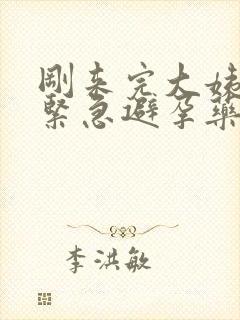 剛来完大姨
緊急避孕藥
李洪敏